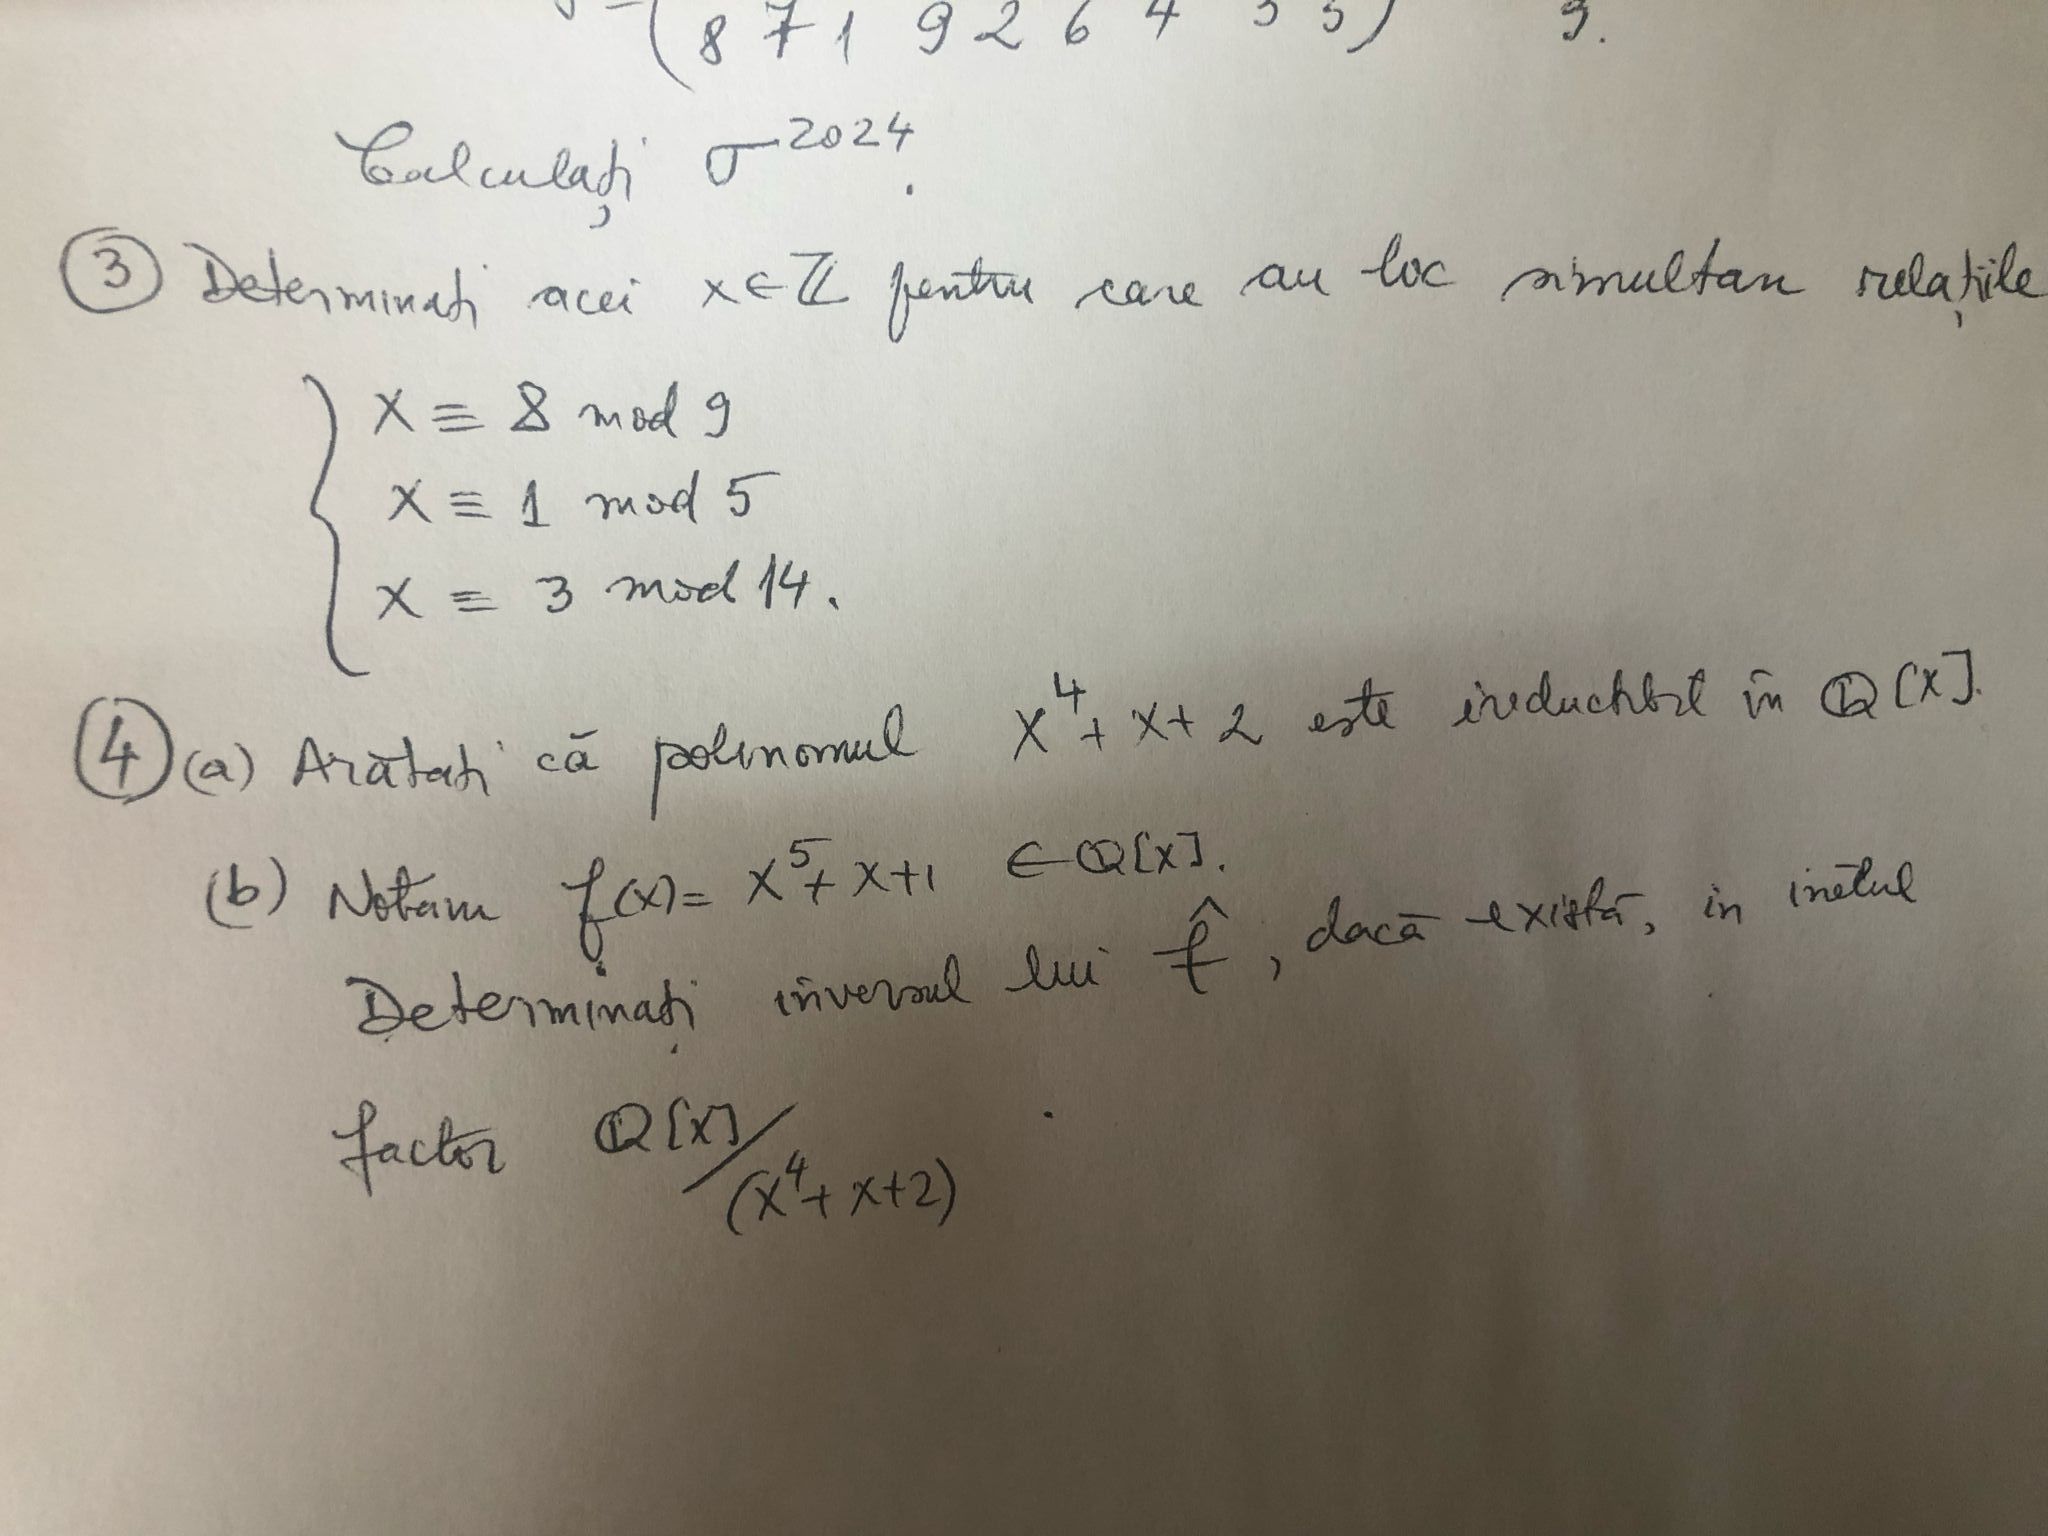 (8 7 1 9 2 6 4 3 5) 9.
Calculați σ^2024.
③ Determinați acei x∈ℤ pentru care au loc simultan relațiile
{ x ≡ 8 mod 9
x ≡ 1 mod 5
x ≡ 3 mod 14.
④ (a) Arătați că polinomul x^4 + x + 2 este ireductibil în ℚ[x].
(b) Notăm f(x) = x^5 + x + 1 ∈ ℚ[x].
Determinați inversul lui f̂, dacă există, in inelul
factor ℚ[x]/(x^4 + x + 2).